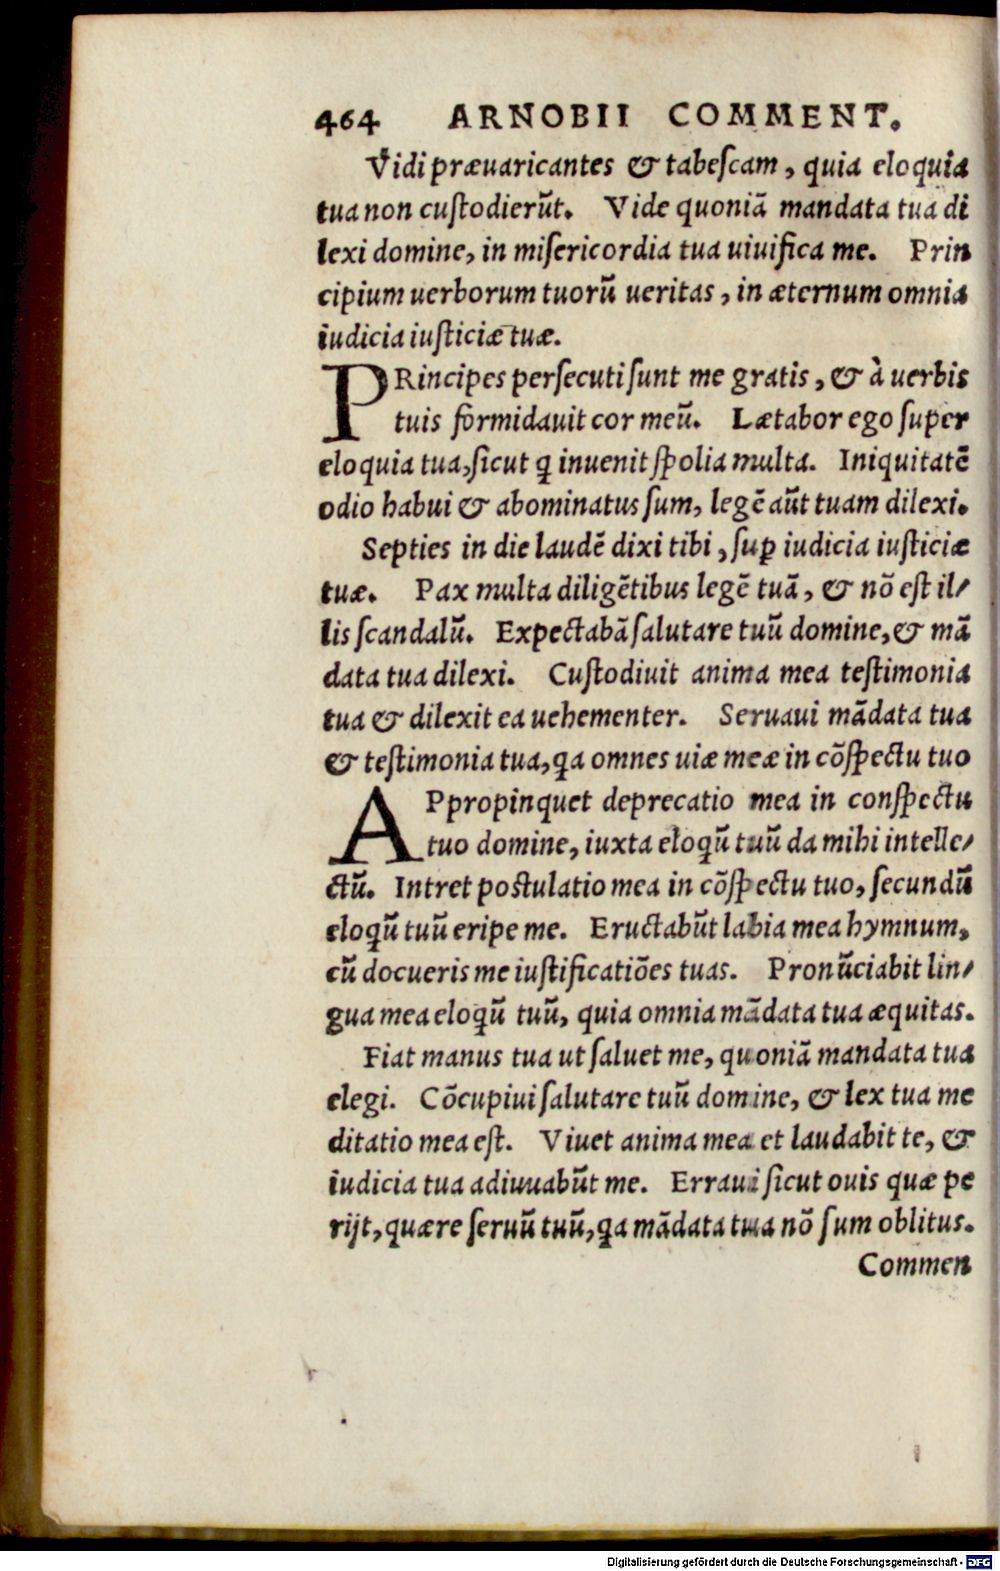 464 ARNOBII COMMENT.
Vidi præuaricantes & tabeſcam, quia eloquia
tua non cuſtodierūt. Vide quoniā mandata tua di
lexi domine, in miſericordia tua uiuifica me. Prin
cipium uerborum tuorū ueritas, in æternum omnia
iudicia iuſticiæ tuæ.
PRincipes perſecuti ſunt me gratis, & à uerbis
tuis formidauit cor meū. Lætabor ego ſuper
eloquia tua, ſicut q̄ inuenit ſpolia multa. Iniquitatē
odio habui & abominatus ſum, legē aūt tuam dilexi.
Septies in die laudē dixi tibi, ſuꝑ iudicia iuſticiæ
tuæ. Pax multa diligētibus legē tuā, & nō eſt il/
lis ſcandalū. Expectabā ſalutare tuū domine, & mā
data tua dilexi. Cuſtodiuit anima mea teſtimonia
tua & dilexit ea uehementer. Seruaui mādata tua
& teſtimonia tua, qa omnes uiæ meæ in cōſpectu tuo
APpropinquet deprecatio mea in conſpectu
tuo domine, iuxta eloqū tuū da mihi intelle/
ctū. Intret poſtulatio mea in cōſpectu tuo, ſecundū
eloqū tuū eripe me. Eructabūt labia mea hymnum,
cū docueris me iuſtificatiōes tuas. Pronūciabit lin/
gua mea eloqū tuū, quia omnia mādata tua æquitas.
Fiat manus tua ut ſaluet me, quoniā mandata tua
elegi. Cōcupiui ſalutare tuū domine, & lex tua me
ditatio mea eſt. Viuet anima mea et laudabit te, &
iudicia tua adiuuabūt me. Erraui ſicut ouis quæ pe
rijt, quære ſeruū tuū, qa mādata tua nō ſum oblitus.
Commen
Digitalisierung gefördert durch die Deutsche Forschungsgemeinschaft - DFG